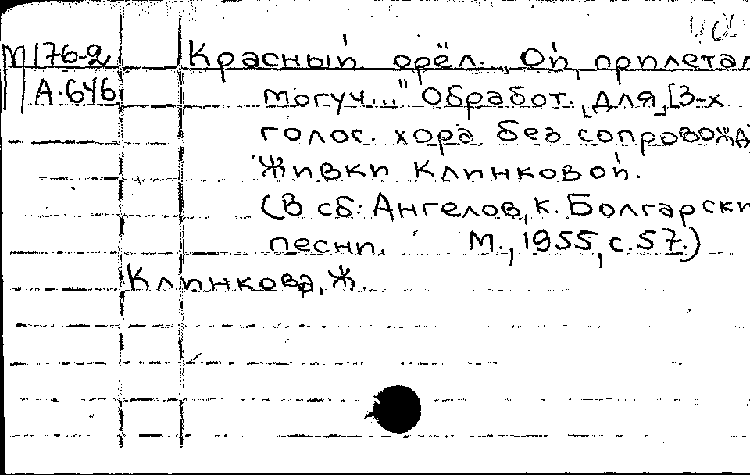 М176-2 Красный орёл. „Ой, прилетал
А-646 могуч..." Обработ. для [3-х
голос. хора без сопровожд
Живки Клинковой.
(В сб: Ангелов, К. Болгарски
песни. М., 1955, с. 57.)
Клинкова, Ж.